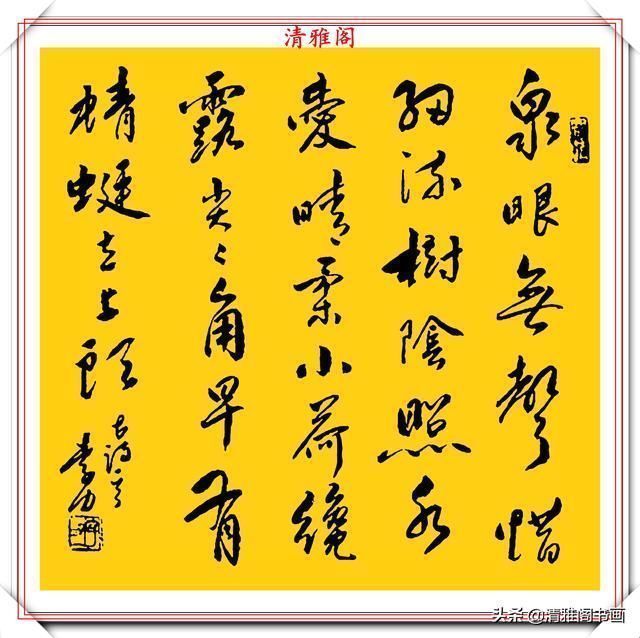 清雅阁
泉眼無聲惜
細流樹陰照水
愛晴柔小荷纔
露尖々角早有
蜻蜓立上頭
古詩一首
李力
头条 @清雅阁书画